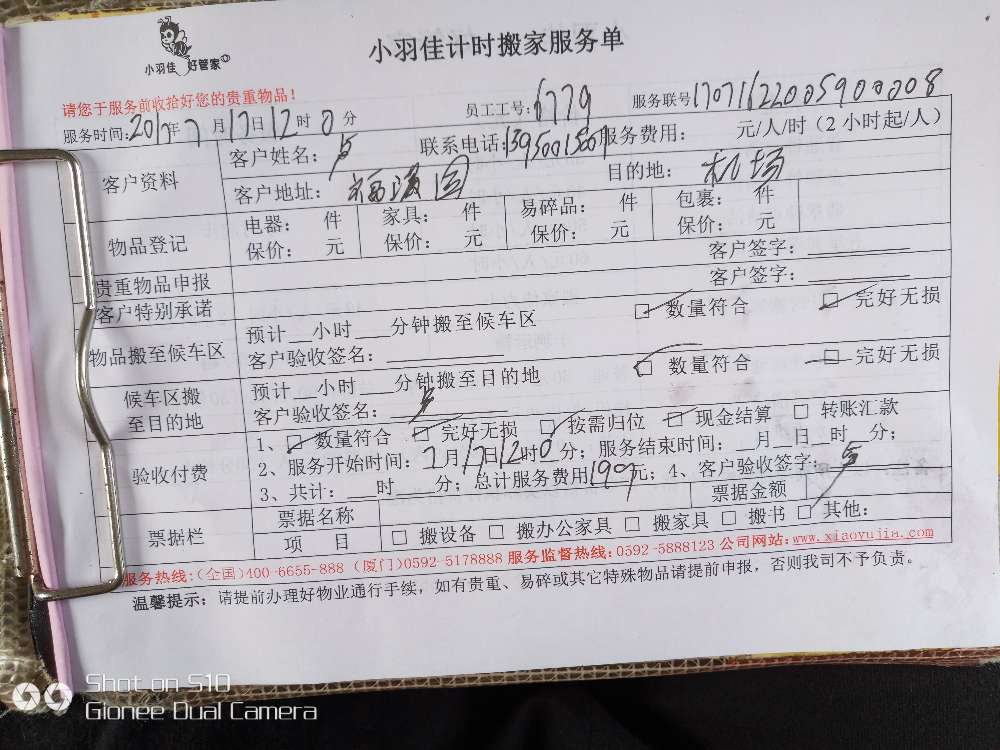 小羽佳 好管家
小羽佳计时搬家服务单
请您于服务前收拾好您的贵重物品!
员工工号: 6779 服务联号170716220059000008
服务时间:2017年7月17日12时0分
客户资料 客户姓名: 联系电话: 服务费用: 元/人/时（2小时起/人）
客户地址: 目的地: 机场
物品登记 电器: 件 家具: 件 易碎品: 件 包裹: 件
保价: 元 保价: 元 保价: 元 保价: 元
贵重物品申报 客户签字:
客户特别承诺 客户签字:
物品搬至候车区 预计__小时___分钟搬至候车区 数量符合 完好无损
客户验收签名:
候车区搬至目的地 预计__小时___分钟搬至目的地 数量符合 完好无损
客户验收签名:
验收付费 1、数量符合 完好无损 按需归位 现金结算 转账汇款
2、服务开始时间: 7月17日12时0分; 服务结束时间: __月__日__时__分;
3、共计: __时___分; 总计服务费用 元; 4、客户验收签字:
票据栏 票据名称 票据金额
项 目 搬设备 搬办公家具 搬家具 搬书 其他:
服务热线:(全国)400-6655-888 (厦门)0592-5178888 服务监督热线:0592-5888123 公司网站:www.xiaoyujia.com
温馨提示: 请提前办理好物业通行手续, 如有贵重、易碎或其它特殊物品请提前申报, 否则我司不予负责。
Shot on S10
Gionee Dual Camera